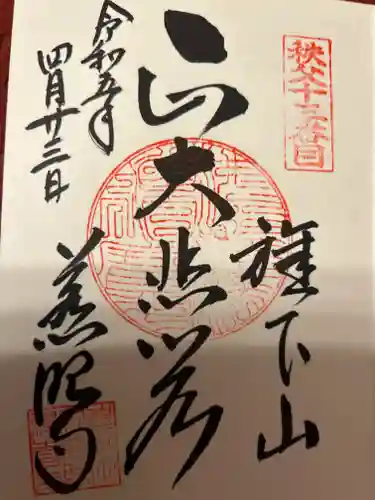 秩父十三番
旗下山
正大悲閣
令和五年
四月廿三日
慈眼寺